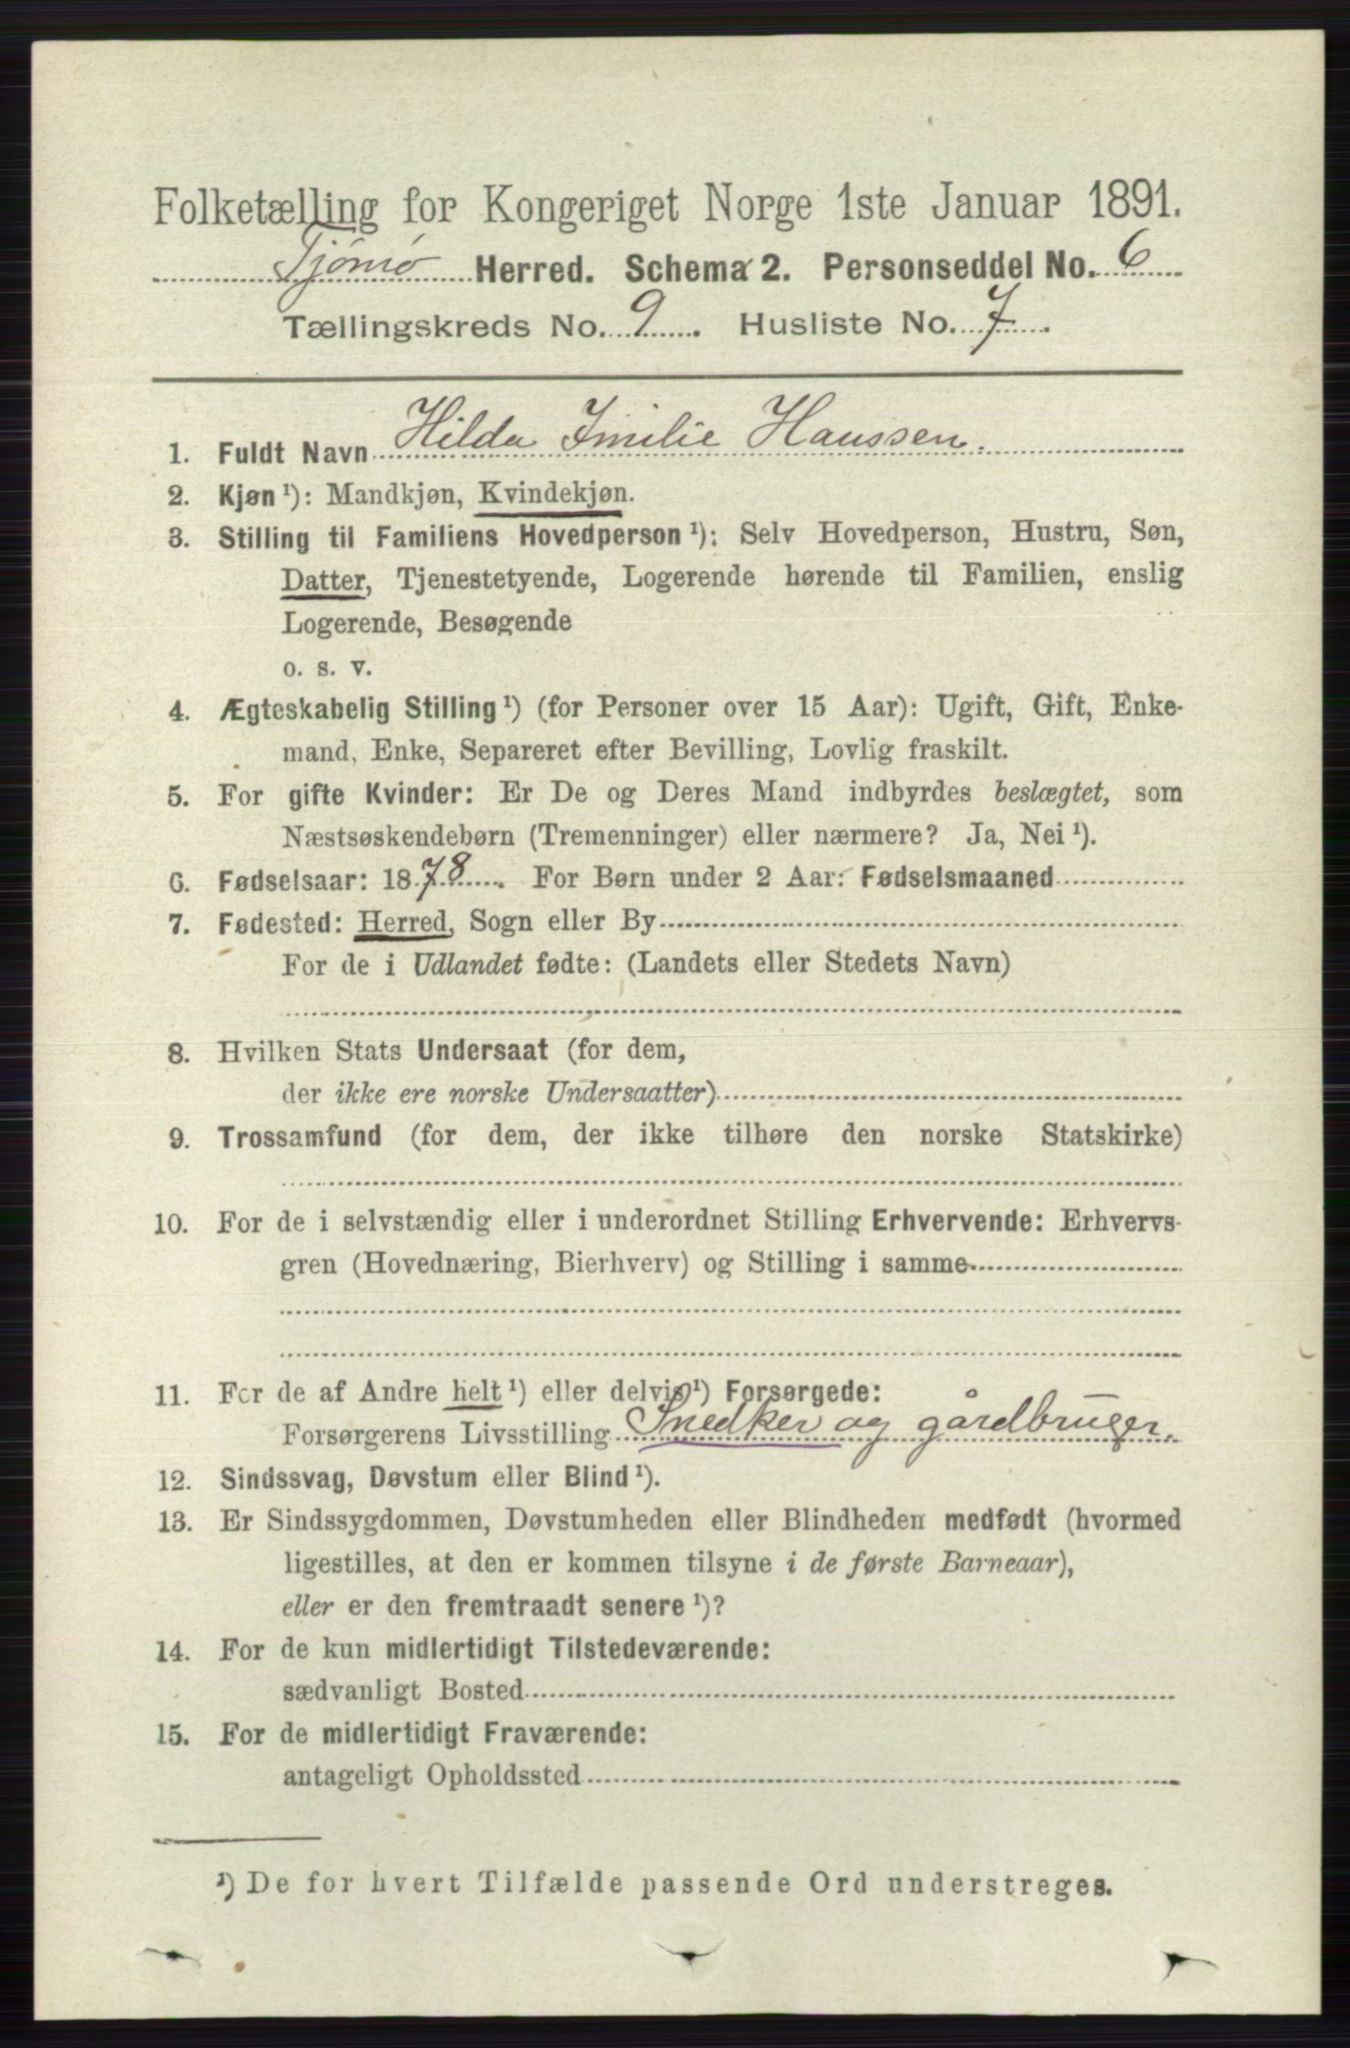 Folketælling for Kongeriget Norge 1ste Januar 1891.
Tjømø Herred. Schema 2. Personseddel No. 6
Tællingskreds No. 9. Husliste No. 7.
1. Fuldt Navn Hilda Imilie Hanssen.
2. Kjøn ¹): Mandkjøn, Kvindekjøn.
3. Stilling til Familiens Hovedperson ¹): Selv Hovedperson, Hustru, Søn,
Datter, Tjenestetyende, Logerende hørende til Familien, enslig
Logerende, Besøgende
o. s. v.
4. Ægteskabelig Stilling ¹) (for Personer over 15 Aar): Ugift, Gift, Enke-
mand, Enke, Separeret efter Bevilling, Lovlig fraskilt.
5. For gifte Kvinder: Er De og Deres Mand indbyrdes beslægtet, som
Næstsøskendebørn (Tremenninger) eller nærmere? Ja, Nei ¹).
6. Fødselsaar: 1878. For Børn under 2 Aar: Fødselsmaaned
7. Fødested: Herred, Sogn eller By
For de i Udlandet fødte: (Landets eller Stedets Navn)
8. Hvilken Stats Undersaat (for dem,
der ikke ere norske Undersaatter)
9. Trossamfund (for dem, der ikke tilhøre den norske Statskirke)
10. For de i selvstændig eller i underordnet Stilling Erhvervende: Erhvervs-
gren (Hovednæring, Bierhverv) og Stilling i samme
11. For de af Andre helt ¹) eller delvis ¹) Forsørgede:
Forsørgerens Livsstilling Snedker og gårdbruger.
12. Sindssvag, Døvstum eller Blind ¹).
13. Er Sindssygdommen, Døvstumheden eller Blindheden medfødt (hvormed
ligestilles, at den er kommen tilsyne i de første Barneaar),
eller er den fremtraadt senere ¹)?
14. For de kun midlertidigt Tilstedeværende:
sædvanligt Bosted
15. For de midlertidigt Fraværende:
antageligt Opholdssted
¹) De for hvert Tilfælde passende Ord understreges.